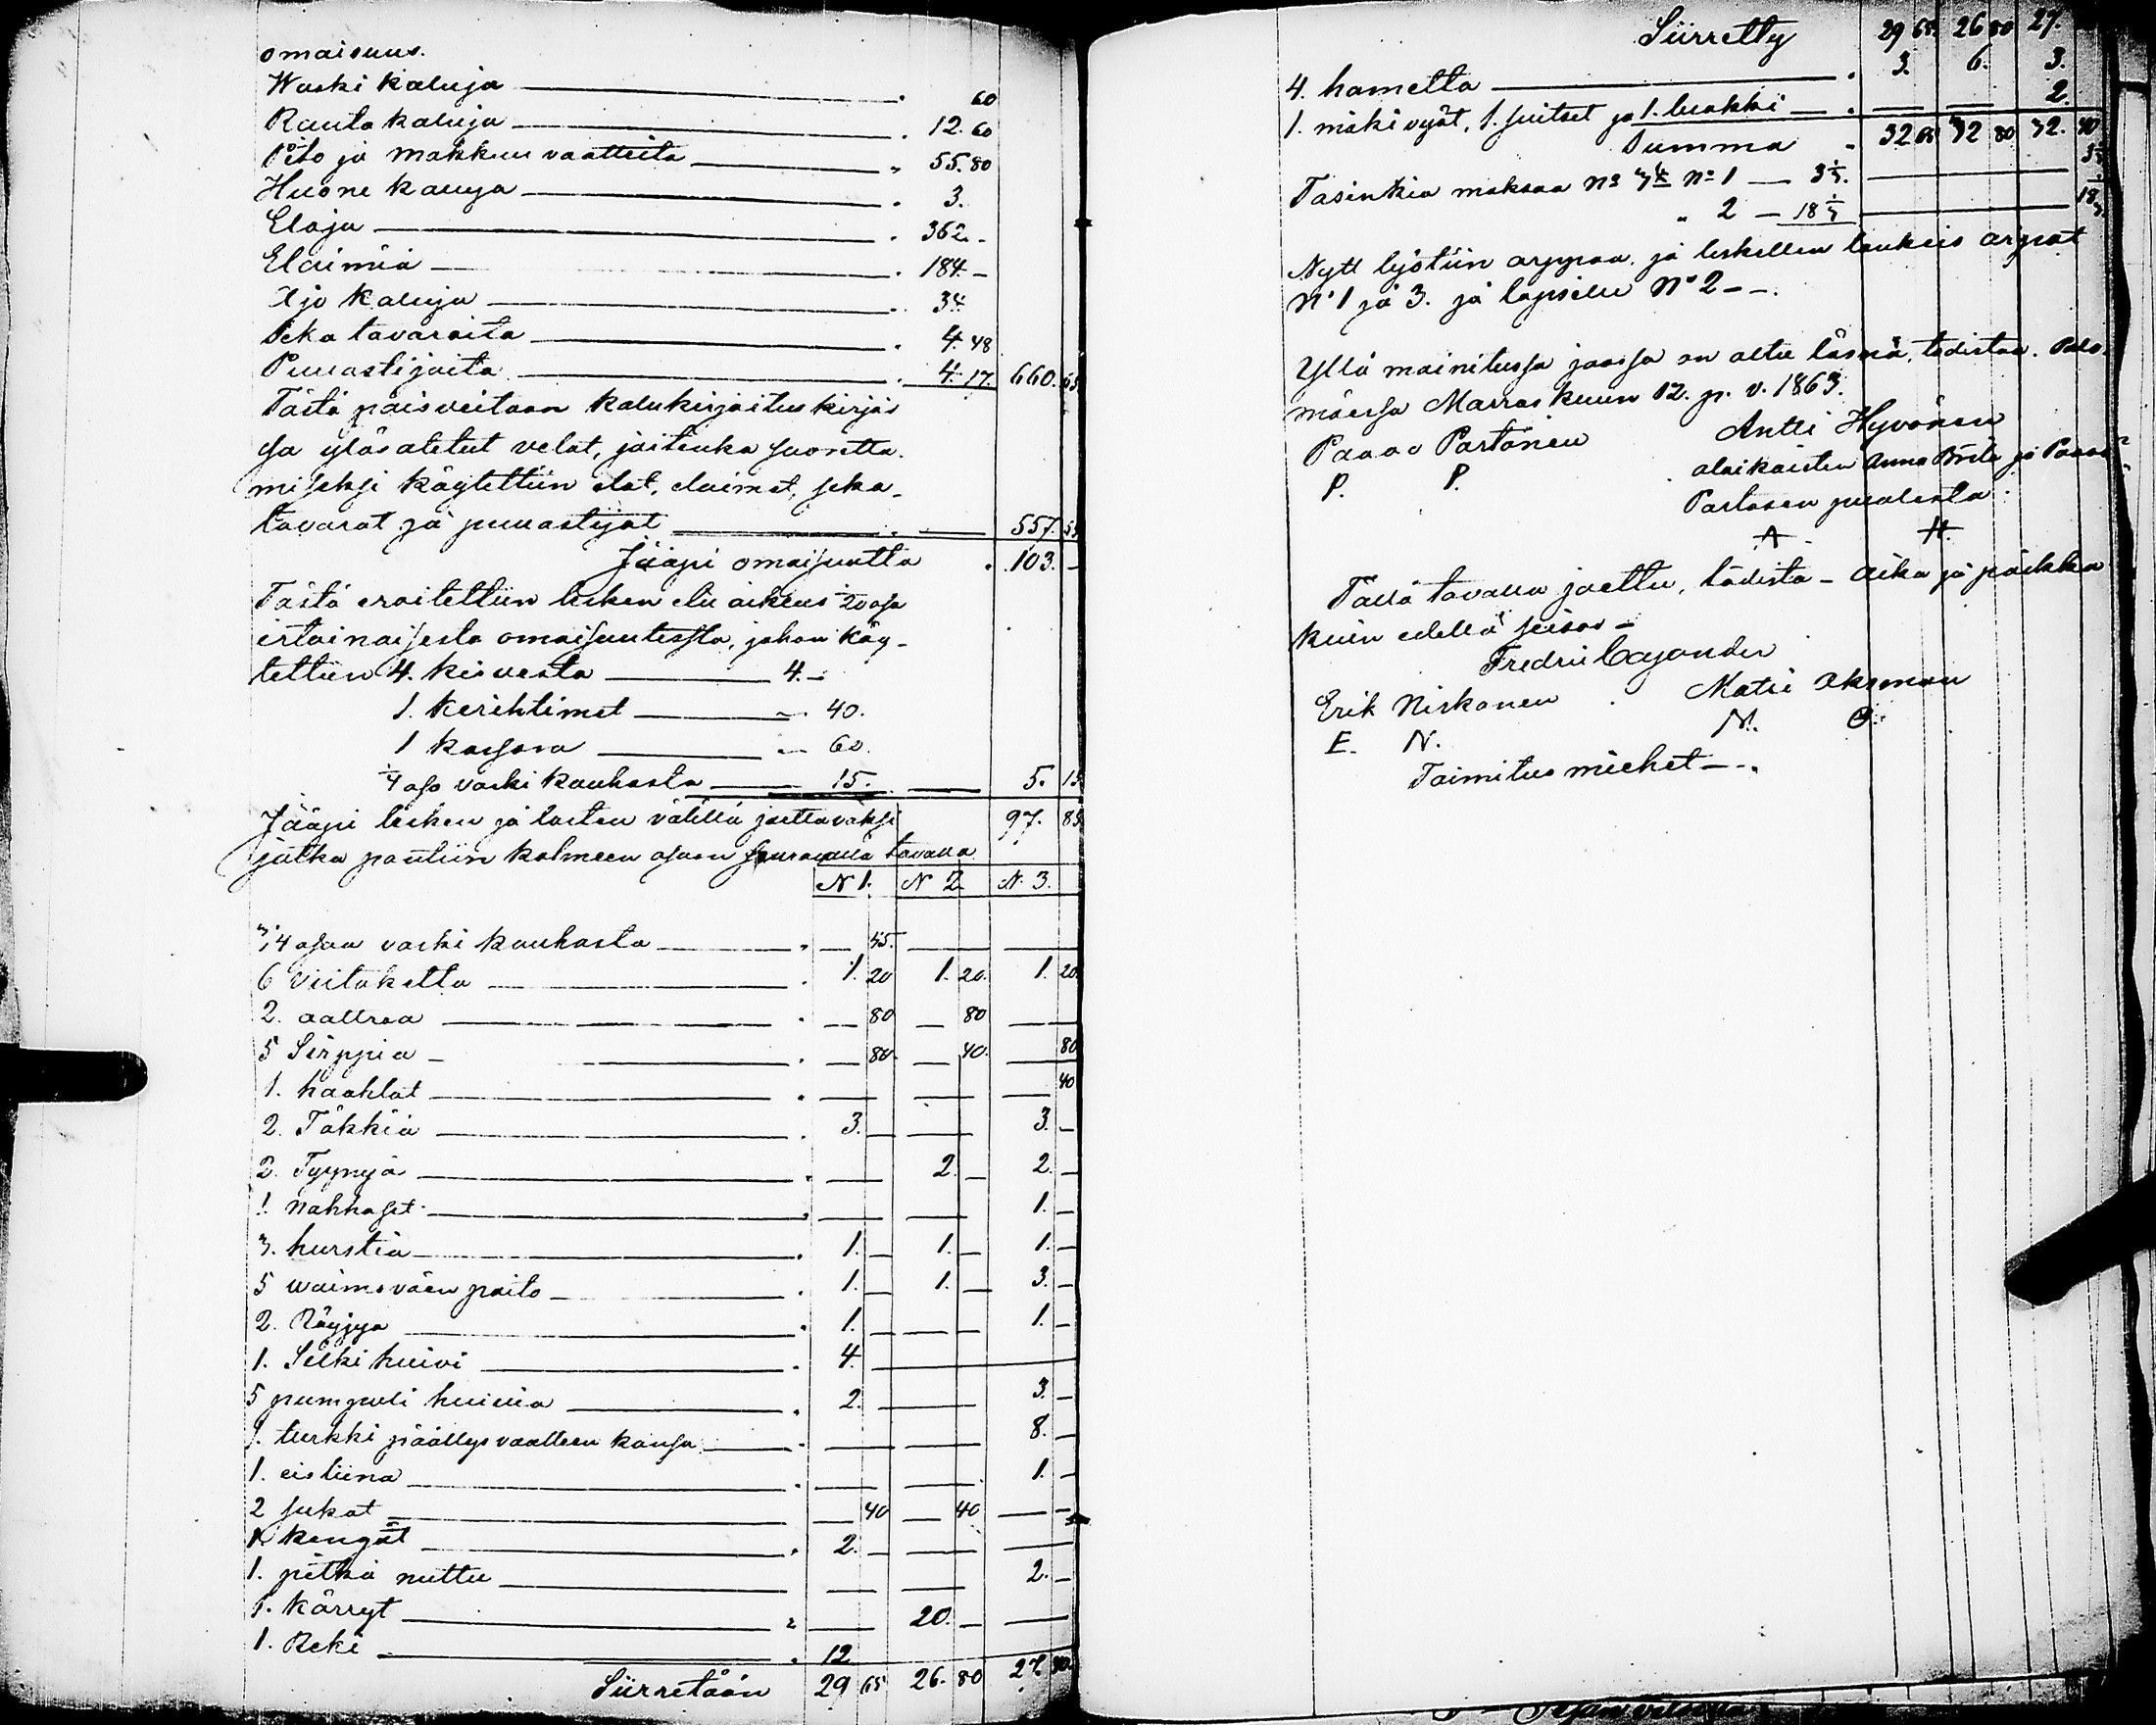 omaisuus.
Waski kaluja — . 60
Rauta kaluja — . 12. 60
Pito ja makkuu vaatteita — " 55. 80
Huone kaluja — . 3.
Eloja — . 362. -
Elaimiä — . 184 -
Ajo kaluja — . 34.
Seka tavaraita — . 4. 48
Puuastijoita — . 4. 17. 660. 65
Tästä poisveitaan kalukirjoitus kirjas
sa ylösotetut velat, joitenka suoritta.
miseksi käytettiin elot, elaimet, seka-
tavarat ja puuastijat — . — 557. 65
Jääpi omaisuutta . 103. -
Tästä eroitettiin lesken etu oikeus 20 osa
irtainaisesta omaisuutesta, johon käy-
tettiin 4. kirvesta — 4. -
1. Kerihtimet — " 40.
1 kassara — " 60.
1/4 osa vaski kauhasta — 15. — 5. 15
Jääpi lesken ja lasten välillä jaettavaksi 97. 85
jotka pantiin kolmeen osaan seuraavalla tavalla
N 1. N 2 N. 3.
3/4 osaa vaski kauhasta — . — 45. — —
6 Viitaketta — . 1. 20 1. 20. 1. 20.
2. aattraa — . — 80 — 80 —
5 Sirppia — . — 80. — 40. — 80
1. haahlat — . — — — 40
2. Täkkiä — . 3. — — 3. —
2. Tyynyä — . — 2. — 2. —
1. nahkaset — . — — 1. —
3. hurstia — . 1. — 1. — 1. —
5 waimoväen paito — . 1. — 1. — 3. —
2. Röyjyä — . 1. — — — 1. —
1. Silki huivi — . 4. —
5 pumpuli huivia — . 2. — 3. —
1. turkki päällysvaatteen kansa — . — — 8. —
1. eisliina — . — — 1. —
2 sukat — — 40 — 40 — —
1. kengät — . 2. — — —
1. pitkä nuttu — — — 2. —
1. kärryt — " — 20. — —
1. Reki — . 12
Siirretään 29 65 26. 80 27. 40.
Siirretty 29 65. 26 80 27.
4. hametta — . 3. 6. 3.
1. mäki vyöt, 1. suitset ja 1. luokki — . — — 2.
Summa . 32 65 32 80 32. 40
Tasinkia maksaa No 3 No 1 — 3 1/3. — 3 1/3
" 2 — 18 1/3 — 18 1/3
Nytt lyötiin arppaa, ja leskellen lankeis arpat
No 1 ja 3. ja lapsille No 2 - -.
Yllä mainitussa jaossa on oltu läsnä, todistaa. Palo-
mäessä Marraskuun 12. p. v. 1863.
Paavo Partanen Antti Hyvönen
P. P. alaikäisten Anna Brita ja Paavo
Partasen puolesta:
A H.
Tällä tavalla jaettu, todista - Aika ja paikka
kuin edellä seisoo -
Fredrik Cajander
Erik Niskanen . Matti Oksman
E. N. M. O.
Toimitus miehet - - .